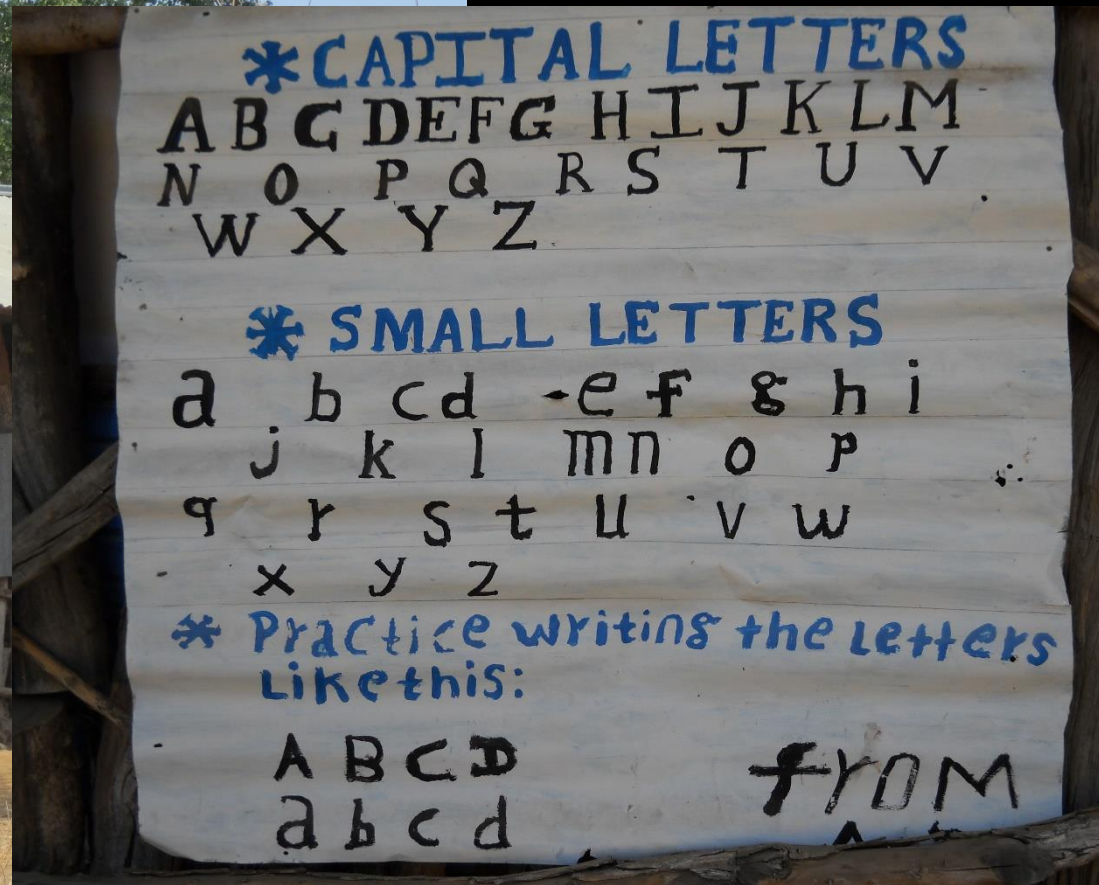 *CAPITAL LETTERS
A B C D E F G H I J K L M
N O P Q R S T U V
W X Y Z
* SMALL LETTERS
a b c d -e f g h i
j k l m n o p
q r s t u v w
x y z
* Practice writing the Letters
Like this:
A B C D
a b c d
from